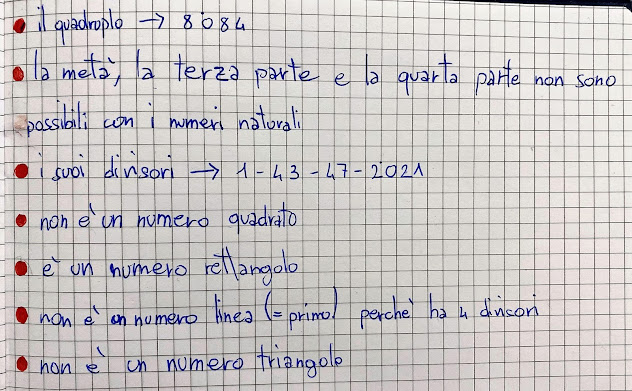 il quadruplo → 8084
la metà, la terza parte e la quarta parte non sono
possibili con i numeri naturali
i suoi divisori → 1-43-47-2021
non è un numero quadrato
è un numero rettangolo
non è un numero linea (= primo) perchè ha 4 divisori
non è un numero triangolo